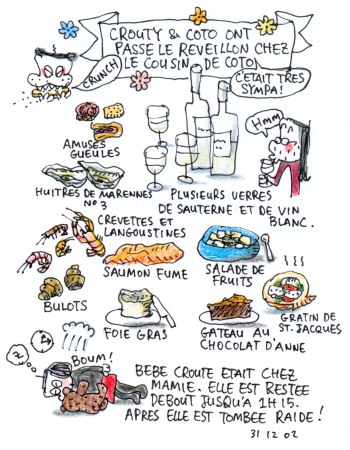 CROUTY & COTO ONT
PASSE LE REVEILLON CHEZ
LE COUSIN DE COTO
CRUNCH
C'ETAIT TRES
SYMPA!
Hmmm
AMUSES
GUEULES
HUITRES DE MARENNES
No 3
PLUSIEURS VERRES
DE SAUTERNE ET DE VIN
BLANC.
CREVETTES ET
LANGOUSTINES
SAUMON FUME
SALADE DE
FRUITS
BULOTS
FOIE GRAS
GATEAU AU
CHOCOLAT D'ANNE
GRATIN DE
ST. JACQUES
Z
Z
BOUM!
BEBE CROUTE ETAIT CHEZ
MAMIE. ELLE EST RESTEE
DEBOUT JUSQU'A 1H15.
APRES ELLE EST TOMBEE RAIDE!
31 12 02